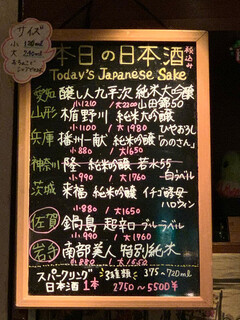 サイズ
小 180ml
大 360ml
本日の日本酒
税込み
Today's Japanese Sake
愛知 醸し人九平次 純米大吟醸
小1210 / 大2200 山田錦50
山形 楯野川 純米大吟醸
小1100 / 大1980 ひやおろし
兵庫 播州一献 純米吟醸「ののさん」
小880 / 大1650
神奈川 隆 純米吟醸 若水55
小990 / 大1760 白ラベル
茨城 来福 純米吟醸 イチゴ酵母
小880 / 大1650 ハロウィン
佐賀 鍋島 超辛口 ブルーラベル
小990 / 大1760
岩手 南部美人 特別純米
小880 / 大1550
スパークリング 3種類 375~720ml
日本酒 1本 2750~5500¥